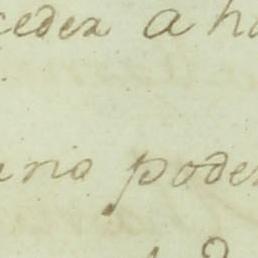 ceder a ha
ario poder